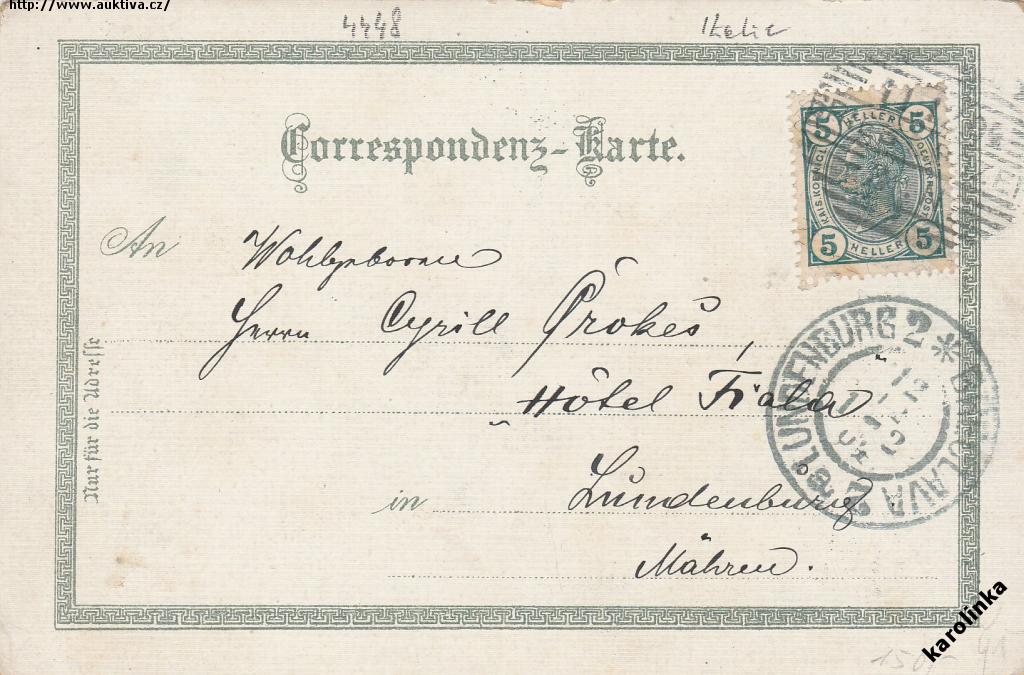 http://www.auktiva.cz/
4448
Correspondenz-Karte.
5 HELLER 5
KAIS. KOENIGL
OESTERR. POST
5 HELLER 5
An
Wohlgeboren
Herrn Cyrill Prokeš,
Hôtel Fiala
in Lundenburg
Mähren.
Nur für die Adresse
LUNDENBURG 2 * BŘECLAVA 2
karolinka